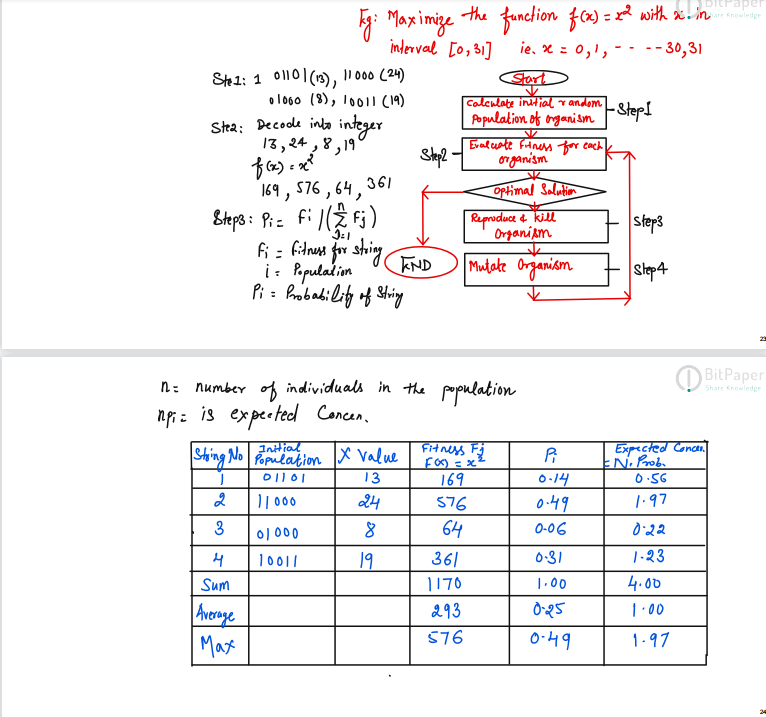 BitPaper
Share Knowledge
Eg: Maximize the function f(x) = x² with x in
interval [0,31] ie. x = 0,1, - - - -30,31
Ste1: 1 01101(13), 11000 (24)
01000 (8), 10011 (19)
Ste2: Decode into integer
13, 24, 8, 19
f(x) = x²
169, 576, 64, 361
Step3: Pi = Fi /(Σ Fj)
n
J=1
Fi = fitness for string
i = Population
Pi = Probability of String
Start
Calculate initial random
Population of organism
Step1
Step2
Evaluate Fitness for each
organism
Optimal Solution
Reproduce & kill
Organism
Step3
END
Mutate Organism
Step4
23
BitPaper
Share Knowledge
n = number of individuals in the population
npi = is expected Concen.
String No | Initial Population | X Value | Fitness Fj F(x) = x² | Pi | Expected Concen. = N. Prob.
1 | 01101 | 13 | 169 | 0.14 | 0.56
2 | 11000 | 24 | 576 | 0.49 | 1.97
3 | 01000 | 8 | 64 | 0.06 | 0.22
4 | 10011 | 19 | 361 | 0.31 | 1.23
Sum | 1170 | 1.00 | 4.00
Average | 293 | 0.25 | 1.00
Max | 576 | 0.49 | 1.97
24